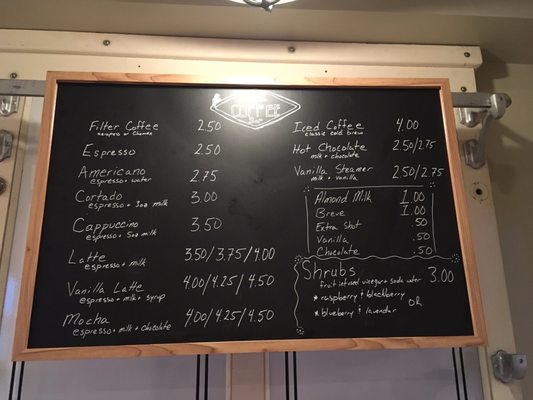 COFFEE
BAR
Filter Coffee 2.50
aeropress or Chemex
Espresso 2.50
Americano 2.75
espresso + water
Cortado 3.00
espresso + 3oz milk
Cappuccino 3.50
espresso + 5oz milk
Latte 3.50/3.75/4.00
espresso + milk
Vanilla Latte 4.00/4.25/4.50
espresso + milk + syrup
Mocha 4.00/4.25/4.50
espresso + milk + chocolate
Iced Coffee 4.00
classic cold brew
Hot Chocolate 2.50/2.75
milk + chocolate
Vanilla Steamer 2.50/2.75
milk + vanilla
Almond Milk 1.00
Breve 1.00
Extra Shot .50
Vanilla .50
Chocolate .50
Shrubs 3.00
fruit infused vinegar + soda water
* raspberry & blackberry
OR
* blueberry & lavender